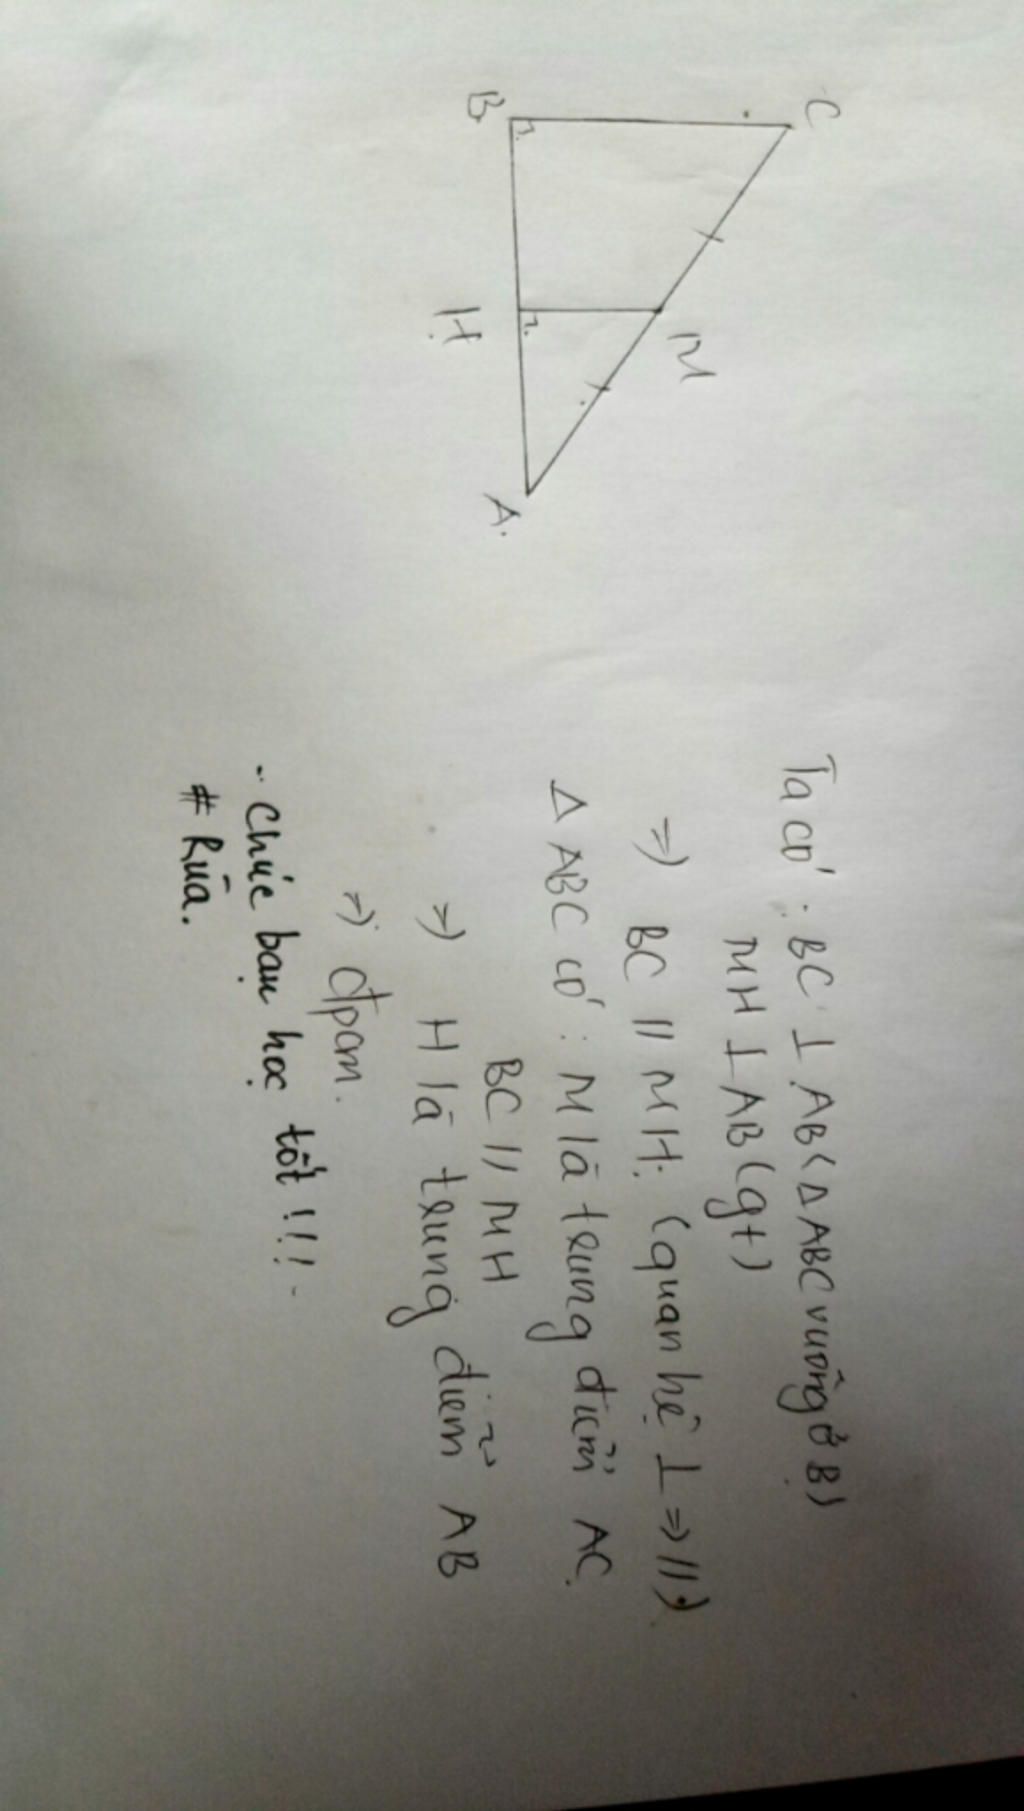 C
B
M
H
A.
Ta có : BC ⊥ AB (Δ ABC vuông ở B)
MH ⊥ AB (gt)
=) BC // MH. (quan hệ ⊥ => //)
Δ ABC có : M là trung điểm AC.
BC // MH
=) H là trung điểm AB
=) đpcm.
- Chúc bạn học tốt !!! -
# Rùa.